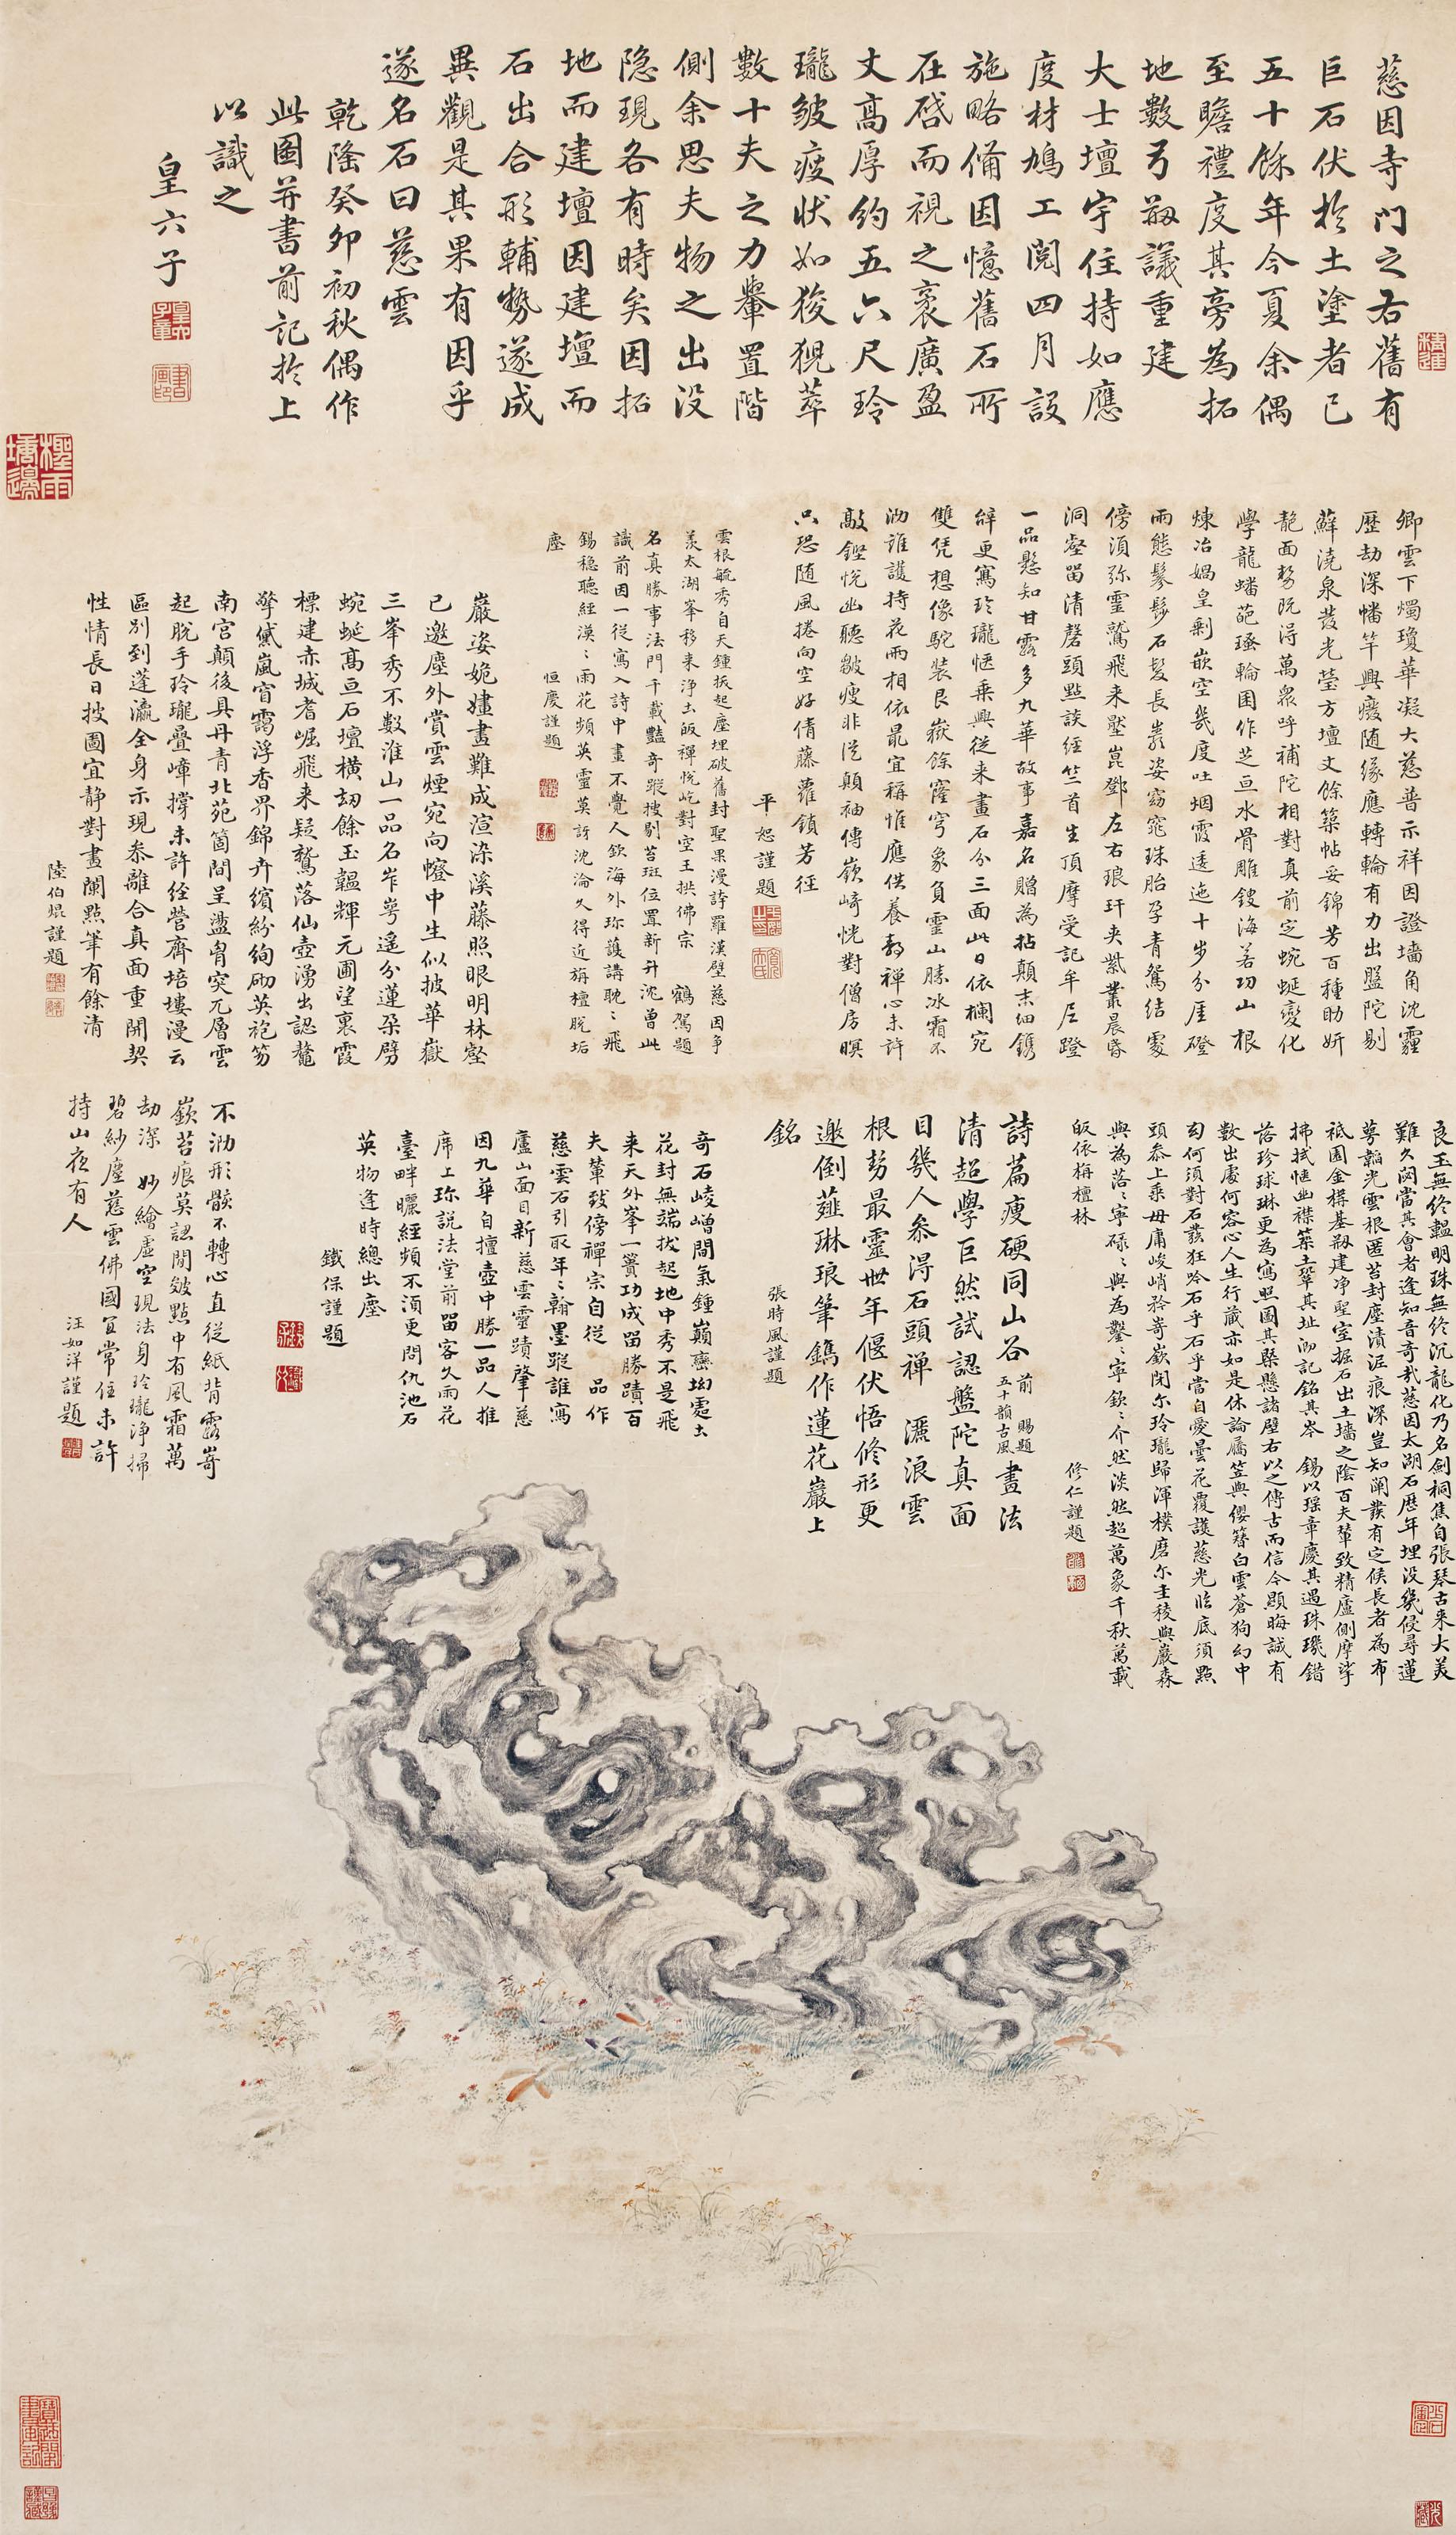 慈因寺門之右舊有
巨石伏於土塗者已
五十餘年今夏余偶
至瞻禮度其旁為拓
地數弓刱議重建
大士壇宇住持如應
度材鳩工閱四月設
施略備因憶舊石所
在啓而視之袤廣盈
丈高厚約五六尺玲
瓏皴瘦狀如狻猊萃
數十夫之力轝置階
側余思夫物之出沒
隐現各有時矣因拓
地而建壇因建壇而
石出合形輔勢遂成
異觀是其果有因乎
遂名石曰慈雲
乾隆癸卯初秋偶作
此圖并書前記於上
以識之
皇六子
卿雲下燭瓊華凝大慈普示祥因證墻角沈霾
歷劫深幡竿興癈随緣應轉輪有力出盤陀剔
蘚澆泉發光瑩方壇丈餘築帖妥錦芳百種助妍
靘面勢既淂萬衆呼補陀相對真前定蜿蜒變化
學龍蟠葩瑵輪囷作芝亘水骨雕鎪海若功山根
煉冶媧皇剩嵌空幾度吐烟霞逶迤十步分厓磴
雨態鬖髿石髮長嵐姿窈窕珠胎孕青鴛結宇
傍須弥靈鷲飛来壓崑鄧左右琅玕夹紫叢晨昏
洞壑留清磬頭點談經竺首生頂摩受記牟尼蹬
一品懸知甘露多九華故事嘉名贈為拈顛末細鐫
辭更寫玲瓏愜乗興從来畫石分三面此日依欄宛
雙凭想像駝装艮嶽餘窪穹象負靈山勝冰霜不
泐誰護持花雨相依最宜稱惟應供養静禪心未許
敲鏗恱幽聽皺瘦非從顛袖傳嶔崎恍對僧房暝
只恐随風捲向空好倩藤蘿鎖芳徑
平恕謹題
雲根毓秀自天鍾振起塵埋破舊封聖果漫詩羅漢壁慈因争
羡太湖峯移来浄土皈禪恱屹對空王拱佛宗 鶴駕題
名真勝事法門千載豔奇蹤搜剔苔斑位置新升沈曽此
識前因一從寫入詩中畫不覺人欽海外珎護講聴〻飛
錫穏聽經漠〻雨花頻英靈莫訴沈淪久得近旃檀脱垢
塵
恒慶謹題
巖姿婗嫿畫難成渲染溪藤照眼明林壑
已邀塵外賞雲煙宛向幮中生似披華嶽
三峯秀不數淮山一品名岝崿遥分蓮朶劈
蜿蜒髙亘石壇横刧餘玉韞輝元圃望裏霞
標建赤城耆崛飛来疑鷲落仙壺湧出認鼇
擎黛嵐窅靄浮香界錦卉繽紛絢砌英袍笏
南宫顛後具丹青北苑箇間呈盪胷突兀層雲
起脱手玲瓏疊嶂撐未許经營齊培塿漫云
區别到蓬瀛全身示現叅離合真面重開契
性情長日披圖宜静對畫闌點筆有餘清
陸伯焜謹題
良玉無終韞明珠無終沉龍化乃名劍桐焦自張琴古来大美
難久閟當其會者逢知音奇哉慈因太湖石歷年埋没幾侵尋蓮
萼韜光雲根匿苔封塵漬泥痕深豈知闡發有定候長者為布
祇園金構基刱建净聖室掘石出土墻之陰百夫輦致精廬側摩挲
拂拭愜幽襟築土鞏其址泐記銘其岑 錫以瑶章慶其遇珠璣錯
落珍球琳更為寫照圖其槩懸諸壁右以之傳古而信今顯晦誠有
數出處何容心人生行蔵亦如是休論屩笠與纓簪白雲蒼狗幻中
幻何須對石發狂吟石乎石乎當自愛曇花覆護慈光臨底須點
頭叅上乗毋庸峻峭矜嵜嶔閉尔玲瓏歸渾樸磨尔圭稜與嚴森
與為落〻寧碌〻與為鑿〻寧欽〻介然淡然超萬象千秋萬載
皈依栴檀林
修仁謹題
詩篇瘦硬同山谷 前 賜題五十韻古風 畫法
清超學巨然試認盤陀真面
目幾人叅得石頭禪 灋浪雲
根勢最靈卋年偃伏悟修形更
邀倒薤琳琅筆鐫作蓮花巖上
銘
張時風謹題
奇石崚嶒間氣鍾巔巒坳處土
花封無端拔起地中秀不是飛
来天外峯一簣功成留勝蹟百
夫輦致傍禪宗自從 品作
慈雲石引取年〻翰墨蹤誰寫
廬山面目新慈雲靈蹟肇慈
因九華自擅壺中勝一品人推
席上珎説法堂前留客久雨花
臺畔曬經頻不須更問仇池石
英物逢時總出塵
鐵保謹題
不泐形骸不轉心直從紙背露嵜
嶔苔痕莫認閒皴點中有風霜萬
劫深 妙繪虛空現法身玲瓏浄掃
碧紗塵慈雲佛國冝常住未許
持山夜有人
汪如洋謹題